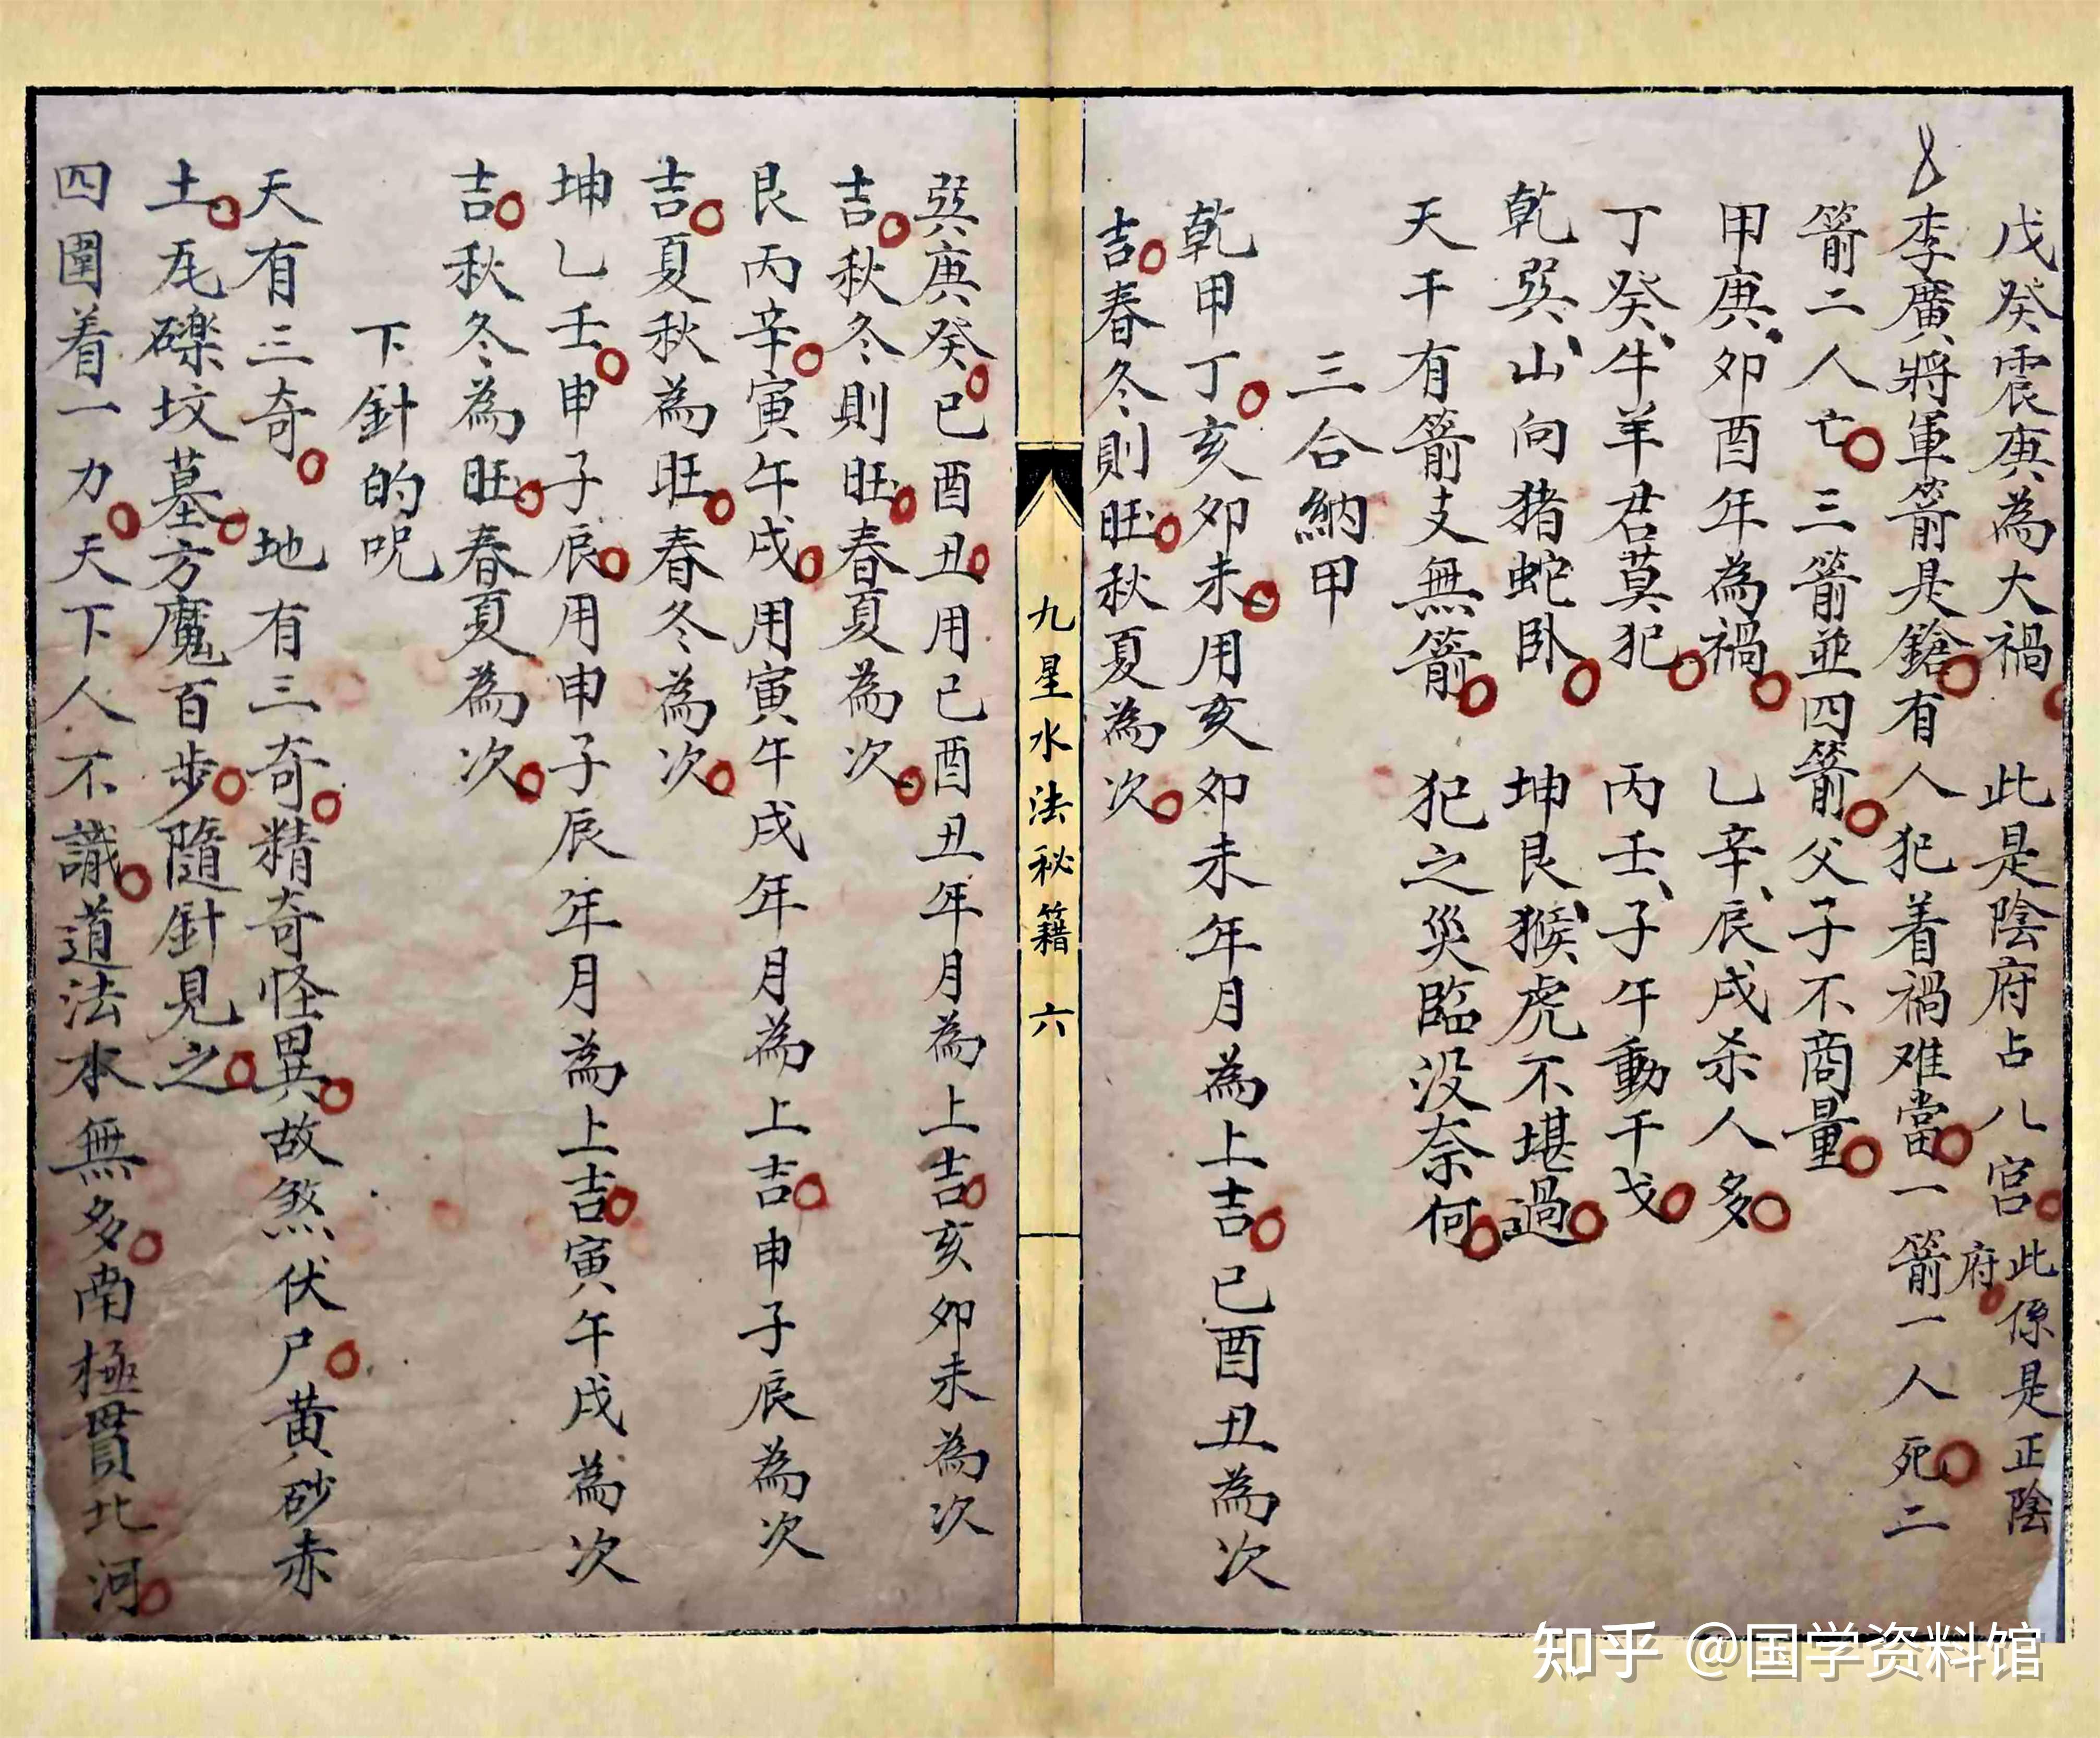 戊癸震庚為大禍 此是陰府占八宮 此係是正陰府
李廣將軍箭是鎗有人犯着禍难當一箭一人死二
箭二人亡三箭並四箭父子不商量
甲庚卯酉年為禍 乙辛辰戌杀人多
丁癸牛羊君莫犯 丙壬子午動干戈
乾巽山向猪蛇卧 坤艮猴虎不堪過
天干有箭支無箭 犯之災臨没奈何
三合納甲
乾甲丁亥卯未用亥卯未年月為上吉已酉丑為次
吉春冬則旺秋夏為次
九星水法秘籍 六
巽庚癸巳酉丑用已酉丑年月為上吉亥卯未為次
吉秋冬則旺春夏為次
艮丙辛寅午戌用寅午戌年月為上吉申子辰為次
吉夏秋為旺春冬為次
坤乙壬申子辰用申子辰年月為上吉寅午戌為次
吉秋冬為旺春夏為次
下針的呪
天有三奇 地有三奇精奇怪異故煞伏尸黄砂赤
土瓦礫坟墓方魔百步隨針見之
四圍着一力天下人不識道法水無多南極貫北河
知乎 @国学资料馆